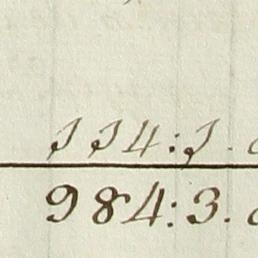 114:1.
984:3.